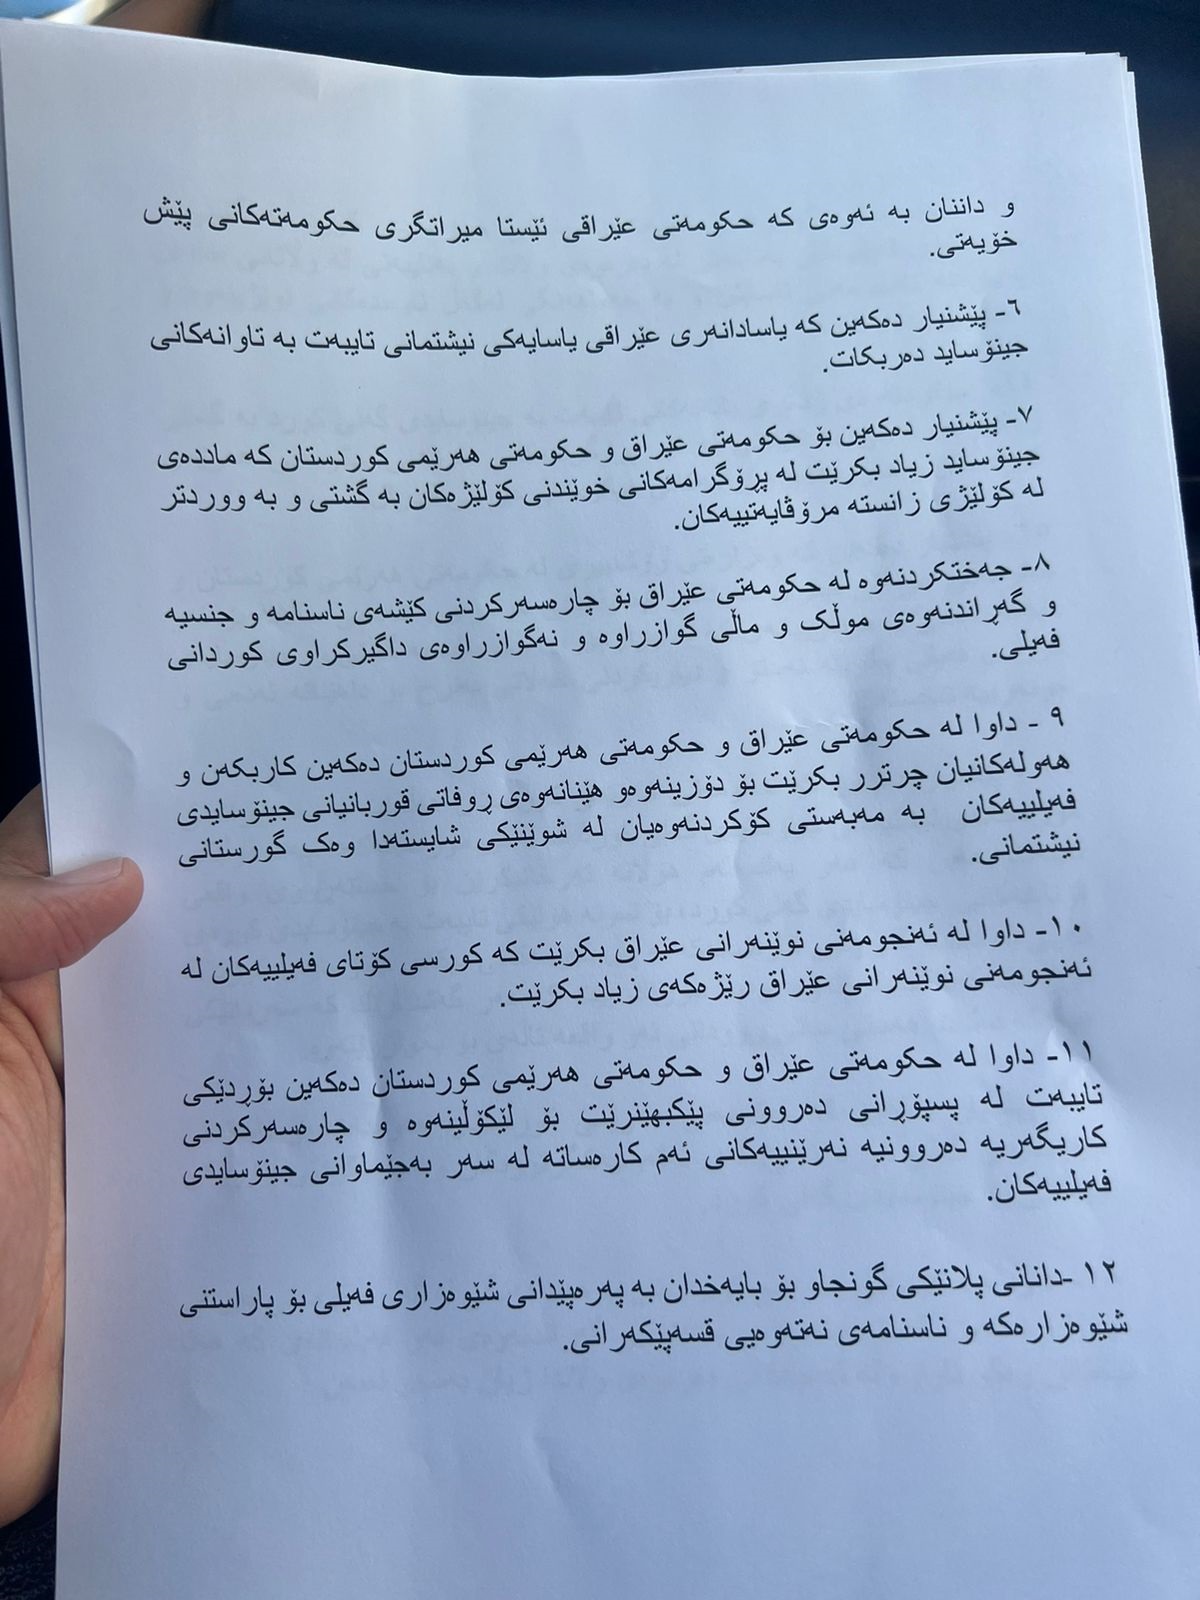 و داننان به ئەوەی که حکومەتی عێراقی ئێستا میراتگری حکومەتەکانی پێش
خۆیەتی.
٦- پێشنیار دەکەین که یاسادانەری عێراقی یاسایەکی نیشتمانی تایبەت به تاوانەکانی
جینۆساید دەربکات.
٧- پێشنیار دەکەین بۆ حکومەتی عێراق و حکومەتی هەرێمی کوردستان که ماددەی
جینۆساید زیاد بکرێت له پڕۆگرامەکانی خوێندنی کۆلێژەکان به گشتی و به ووردتر
له کۆلێژی زانسته مرۆڤایەتییەکان.
٨- جەختکردنەوه له حکومەتی عێراق بۆ چارەسەرکردنی کێشەی ناسنامه و جنسیه
و گەڕاندنەوەی موڵک و ماڵی گوازراوه و نەگوازراوەی داگیرکراوی کوردانی
فەیلی.
٩ - داوا له حکومەتی عێراق و حکومەتی هەرێمی کوردستان دەکەین کاربکەن و
هەولەکانیان چرتر بکرێت بۆ دۆزینەوەو هێنانەوەی ڕوفاتی قوربانیانی جینۆسایدی
فەیلییەکان به مەبەستی کۆکردنەوەیان له شوێنێکی شایستەدا وەک گورستانی
نیشتمانی.
١٠- داوا له ئەنجومەنی نوێنەرانی عێراق بکرێت که کورسی کۆتای فەیلییەکان له
ئەنجومەنی نوێنەرانی عێراق رێژەکەی زیاد بکرێت.
١١- داوا له حکومەتی عێراق و حکومەتی هەرێمی کوردستان دەکەین بۆردێکی
تایبەت له پسپۆڕانی دەروونی پێکبهێنرێت بۆ لێکۆڵینەوه و چارەسەرکردنی
کاریگەریه دەروونیه نەرێنییەکانی ئەم کارەساته له سەر بەجێماوانی جینۆسایدی
فەیلییەکان.
١٢ -دانانی پلانێکی گونجاو بۆ بایەخدان به پەرەپێدانی شێوەزاری فەیلی بۆ پاراستنی
شێوەزارەکه و ناسنامەی نەتەوەیی قسەپێکەرانی.